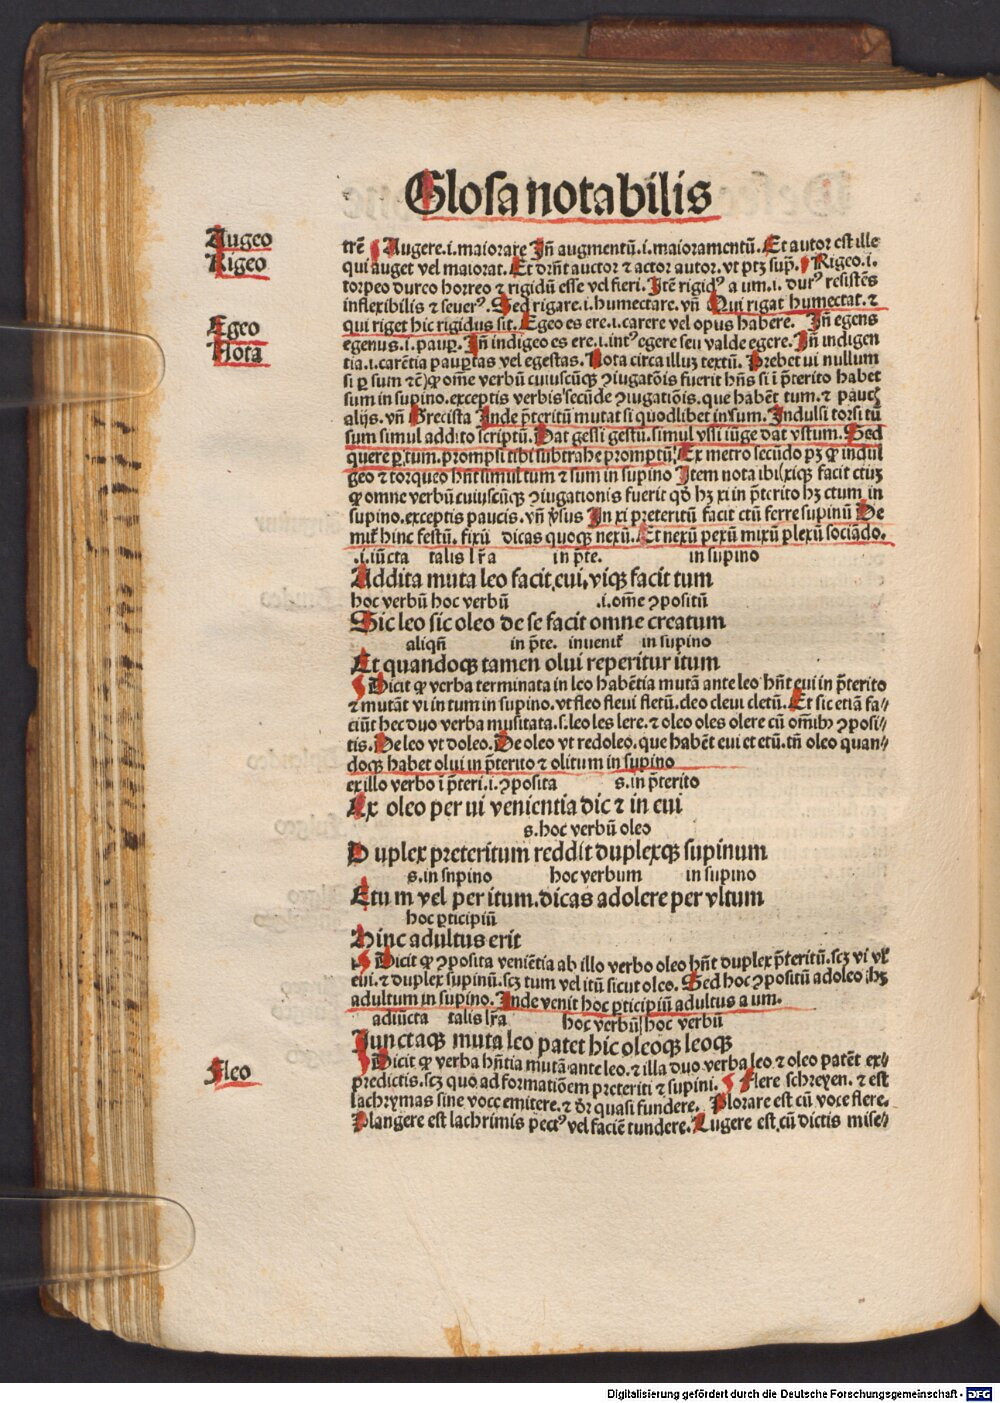 Glosa notabilis
Augeo
Rigeo
Egeo
Nota
Fleo
trē ¶ Augere.i.maiorare Jn̄ augmentū.i.maioramentū. Et autor est ille
qui auget vel maiorat. Et drn̄t auctor ⁊ actor autor. vt ptꝫ sup̄. ¶ Rigeo.i.
torpeo dureo horreo ⁊ rigidū esse vel fieri. Itē rigidꝰ a um.i. durꝰ resistēs
inflexibilis ⁊ seuerꝰ. Sed rigare.i.humectare. vn̄ Qui rigat humectat. ⁊
qui riget hic rigidus sit. Egeo es ere.i.carere vel opus habere. Jn̄ egens
egenus.i.pauꝑ. Jn̄ indigeo es ere.i.intꝰ egere seu valde egere. Jn̄ indigen
tia.i.carētia pauꝑtas vel egestas. Nota circa illuꝫ textū. Prebet ui nullum
si ꝑ sum ⁊c̄) ꝙ om̄e verbū cuiuscūqꝫ ↄiugatōis fuerit hn̄s si ī p̄terito habet
sum in supino.exceptis verbis secūde ↄiugatiōis.que habēt tum.⁊ paucꝭ
alijs. vn̄ Grecista Jnde p̄teritū mutat si quodlibet in sum. Jndulsi torsi tū
sum simul addito scriptū. Dat gessi gestū.simul vssi iūge dat vstum. Sed
quere ꝑ tum.prompsi tibi subtrahe promptū. Ex metro secūdo pꝫ ꝙ indul
geo ⁊ torqueo hn̄t simul tum ⁊ sum in supino Jtem nota ibi (xiqꝫ facit ctuꝫ
ꝙ omne verbū cuiuscūqꝫ ↄiugationis fuerit qd̓ hꝫ xi in p̄terito hꝫ ctum in
supino.exceptis paucis. vn̄ ꝟsus Jn xi preteritū facit ctū ferre supinū De
mit̄ hinc festū. fixū dicas quoqꝫ nexū. Et nexū pexū mixū plexū sociādo.
.i.iūcta talis lr̄a in p̄te. in supino
Addita muta leo facit.eui,viqꝫ facit tum
hoc verbū hoc verbū .i.om̄e ↄpositū
Sic leo sic oleo de se facit omne creatum
aliqn̄ in p̄te. inuenit̄ in supino
Et quandoqꝫ tamen olui reperitur itum
¶ Dicit ꝙ verba terminata in leo habētia mutā ante leo hn̄t eui in p̄terito
⁊ mutāt vi in tum in supino. vt fleo fleui fletū.deo cleui cletū. Et sic etiā fa⸗
ciūt hec duo verba musitata.s.leo les lere.⁊ oleo oles olere cū om̄ibꝰ ↄposi⸗
tis. De leo vt doleo. De oleo vt redoleo. que habēt eui et etū.tn̄ oleo quan⸗
doqꝫ habet olui in p̄terito ⁊ olitum in supino
ex illo verbo ī p̄teri.i.ↄposita s.in p̄terito
Ex oleo per ui venientia dic ⁊ in eui
s.hoc verbū oleo
Duplex preteritum reddit duplexqꝫ supinum
s.in snpino hoc verbum in supino
Etum vel per itum.dicas adolere per vltum
hoc ꝑticipiū
Hinc adultus erit
¶ Dicit ꝙ ↄposita veniētia ab illo verbo oleo hn̄t duplex p̄teritū.scꝫ vi vl̓
eui.⁊ duplex supinū.scꝫ tum vel itū sicut oleo. Sed hoc ↄpositū adoleo hꝫ
adultum in supino. Jnde venit hoc ꝑticipiū adultus a um.
adiūcta talis lr̄a hoc verbū hoc verbū
Junctaqꝫ muta leo patet hic oleoqꝫ leoqꝫ
¶ Dicit ꝙ verba hn̄tia mutā ante leo.⁊ illa duo verba leo ⁊ oleo patēt ex⸗
predictis.scꝫ quo ad formatiōem preteriti ⁊ supini. ¶ Flere schreyen. ⁊ est
lachrymas sine voce emitere.⁊ dr̄ quasi fundere. Plorare est cū voce flere.
Plangere est lachrimis pectꝰ vel faciē tundere. Lugere est.cū dictis mise⸗
Digitalisierung gefördert durch die Deutsche Forschungsgemeinschaft - DFG